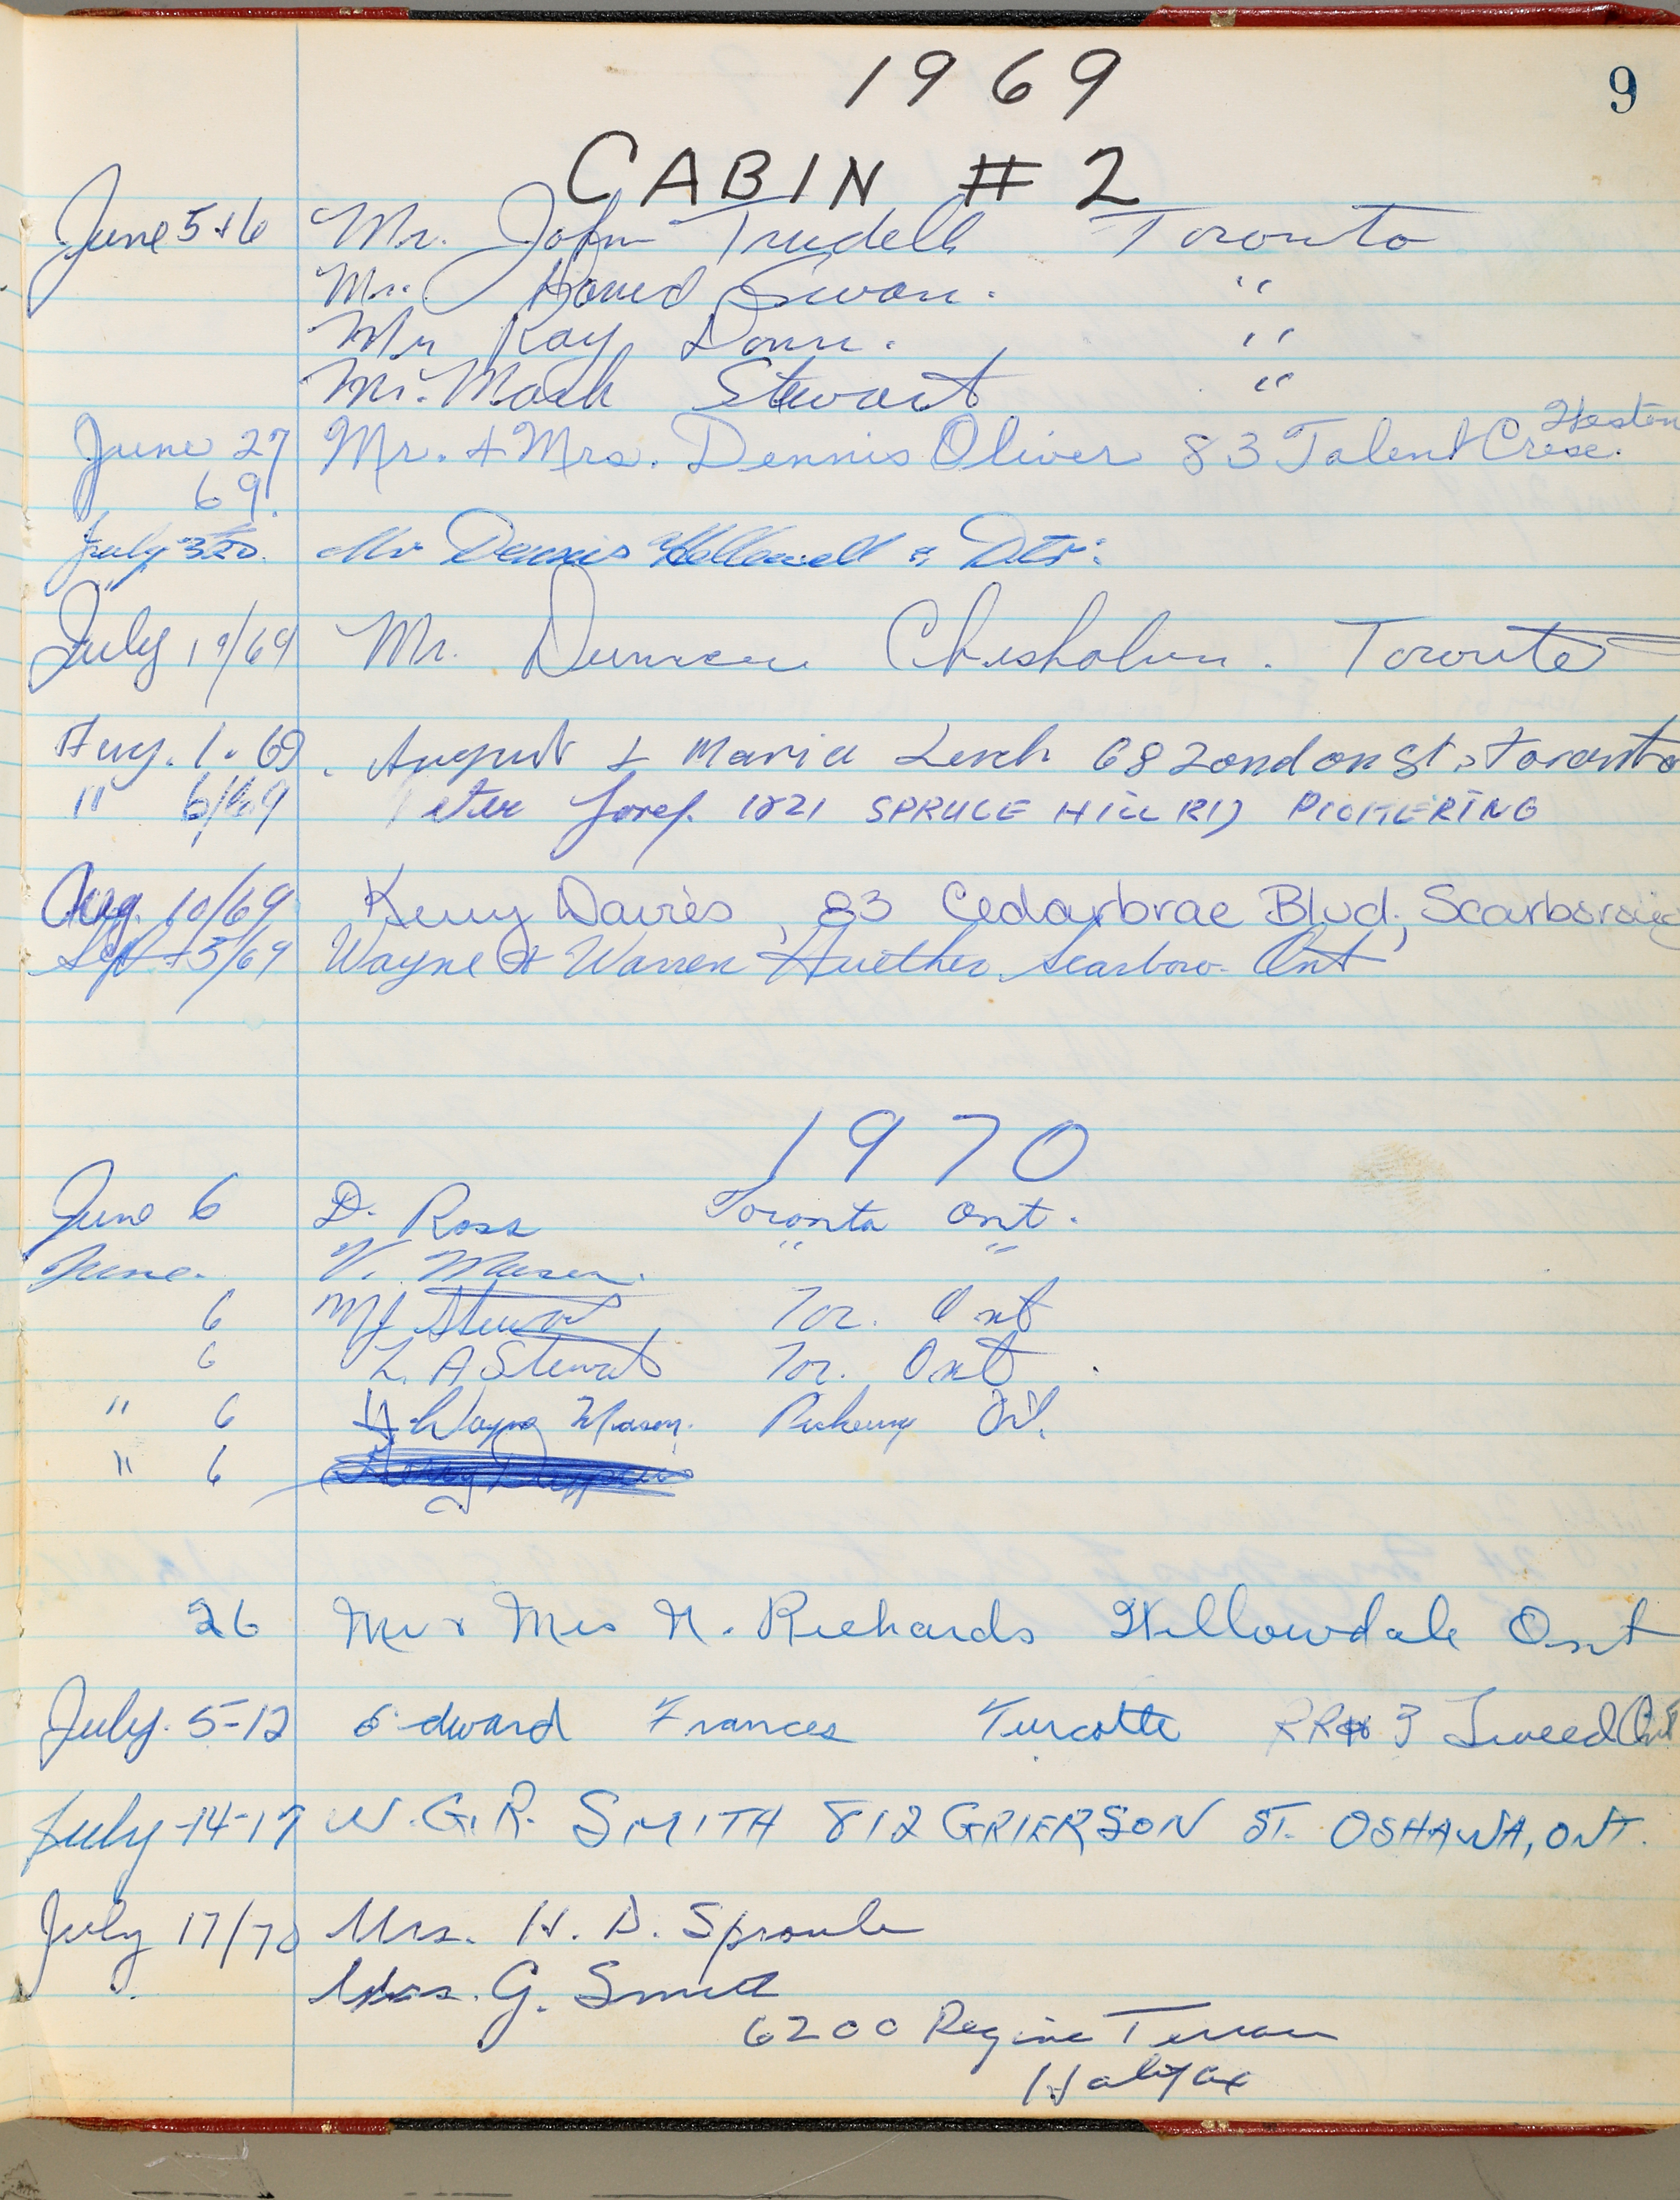 9
1969
CABIN #2
June 5+6 Mr. John Trudell Toronto
Mr. David Swan. "
Mr Ray Donn. "
Mr. Mark Stewart "
Weston
June 27 Mr. + Mrs. Dennis Oliver 83 Talent Cresc.
69.
July Mr Dennis Hellowell &
July 19/69 Mr. Duncan Chisholm. Toronto
Aug. 1. 69. August & Maria Lerch 68 London St, Toronto
" 6/69 Peter Josef. 1821 SPRUCE HILL RD PICKERING
Aug. 10/69 Kerry Davies, 83 Cedarbrae Blvd, Scarborough
Sept 5/69 Wayne & Warren Huether Scarboro. Ont
1970
June 6 D. Ross Toronto Ont.
June. V. Mason. " "
6 Stewart Tor. Ont
6 L. A Stewart Tor. Ont
" 6 Wayne Mason. Pickering Ont.
" 6
26 Mr & Mrs N. Richards Willowdale Ont
July. 5-12 Edward Frances Turcotte RR# 3 Tweed Ont
July -14-17 W. G. R. SMITH 812 GRIERSON ST. OSHAWA, ONT.
July 17/70 Mrs. H. D. Sproule
Mrs. G. Smith
6200 Regina Terrace
Halifax